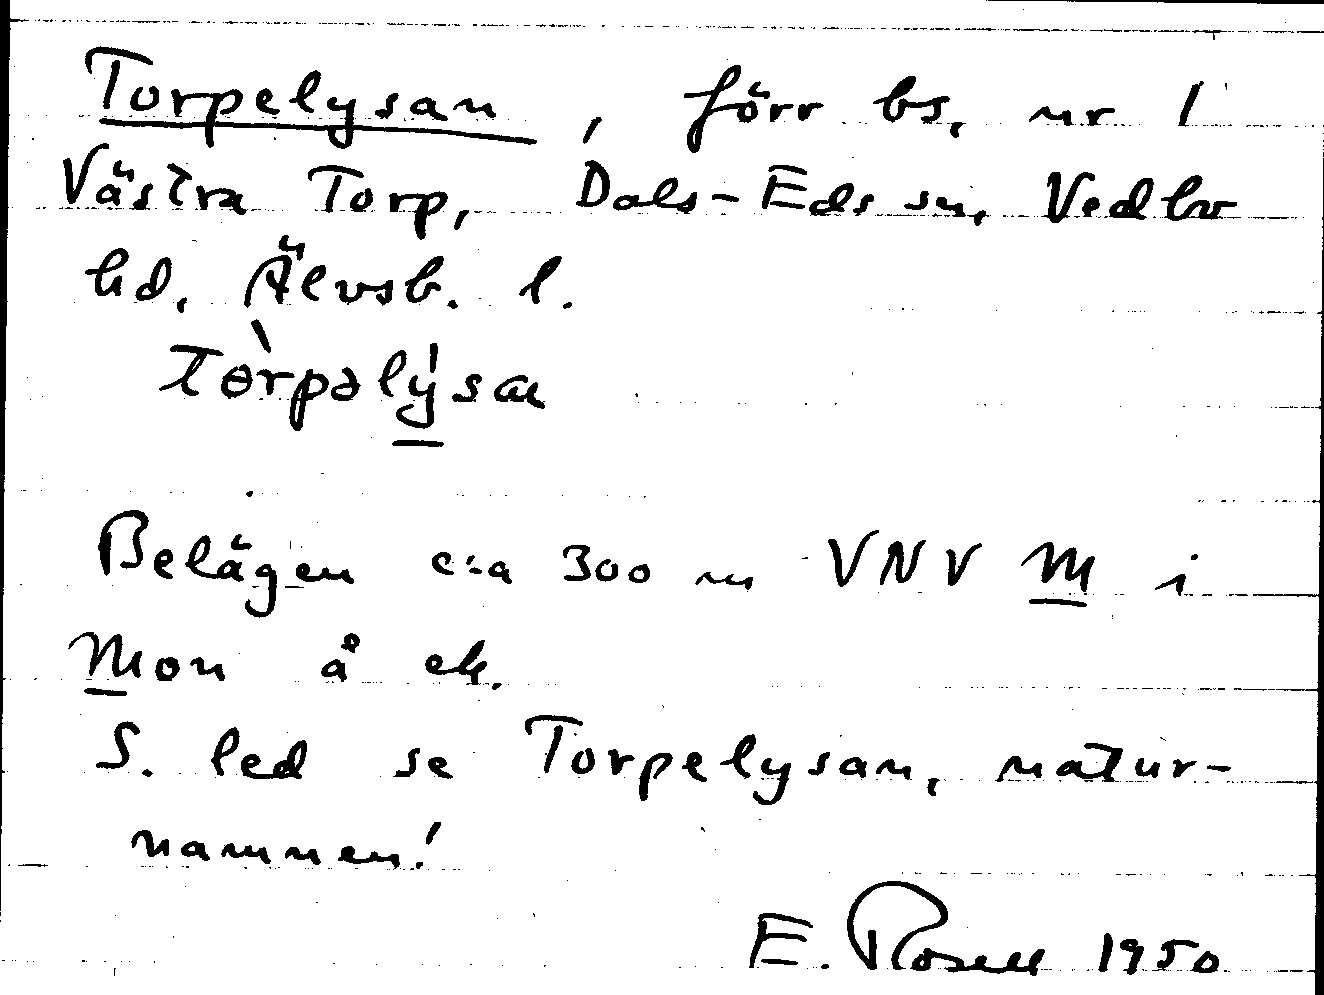 Torpelysan, förr bs. nr 1
Västra Torp, Dals-Eds sn, Vedbo
hd, Älvsb. l.
tòrpəlýsan
Belägen c:a 300 m VNV M i
Mon å ek.
S. led se Torpelysan, natur-
namnen!
E. Rosell 1950